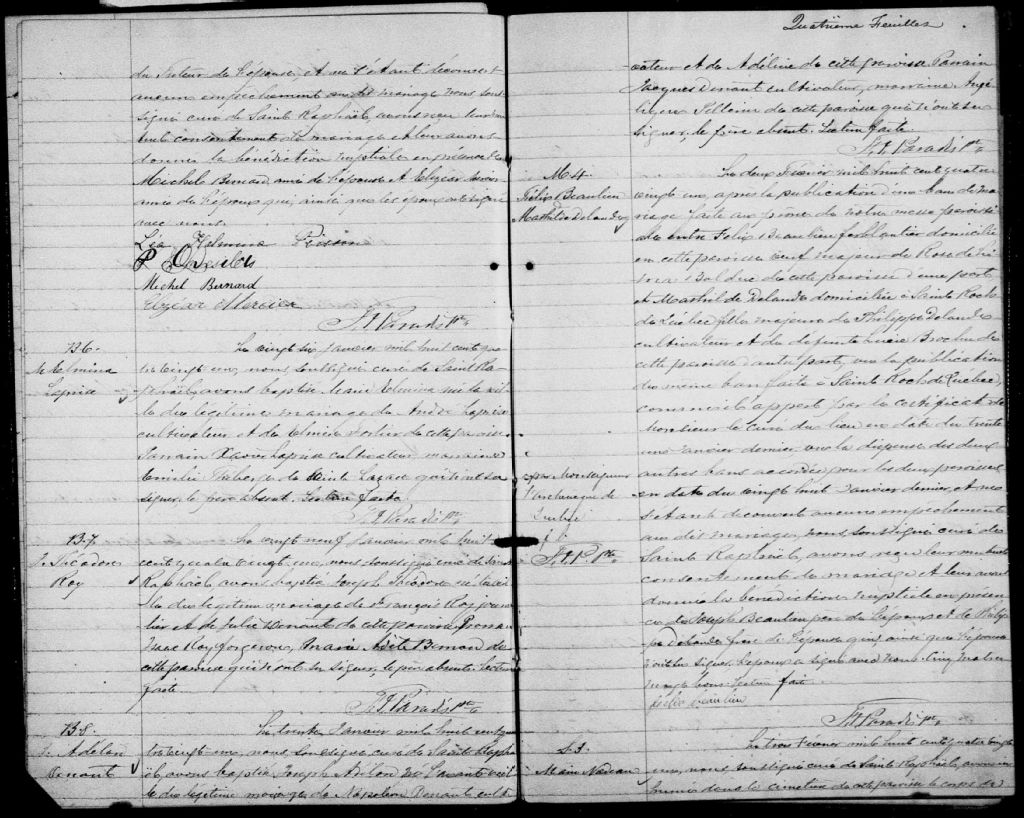 du tuteur de l'épouse, et ne s'étant découvert
aucun empêchement au dit mariage nous sous-
signé curé de Saint Raphaël, avons reçu leur mu-
tuel consentement de mariage et leur avons
donné la bénédiction nuptiale en présence de
Michel Bernard, ami de l'épouse et Elzéar Mercier
ami de l'époux qui, ainsi que les époux ont signé
avec nous.
Léa Helmina
Michel Bernard
Elzéar Mercier
Paradis Ptre
B6.
M Elmina
Laprise
Le vingt six janvier mil huit cent qua-
tre vingt un, nous soussigné curé de Saint Ra-
phaël, avons baptisé Marie Elmina née la veil-
le du légitime mariage de André Laprise
cultivateur et de Elmire Fortier de cette paroisse.
Parrain Xavier Laprise cultivateur, marraine
Emilie Théberge de Saint Lazare qui n'ont su
signer, le père absent. Lecture faite
Paradis Ptre
B7.
J. Théodore
Roy
Le vingt neuf janvier mil huit
cent quatre vingt un, nous soussigné curé de Saint
Raphaël avons baptisé Joseph Théodore né la veil-
le du légitime mariage de François Roy journa-
lier et de Julie Denault de cette paroisse. Parrain
Isaac Roy forgeron, marraine Adèle Bernard de
cette paroisse qui n'ont su signer, le père absent. Lecture
faite.
Paradis Ptre
B8.
J. Adélar
Denault
Le trente janvier mil huit cent qua-
tre vingt un, nous soussigné curé de Saint Rapha-
ël, avons baptisé Joseph né l'avant veille
du légitime mariage de Napoléon Denault culti-
Quatrième Feuillet
vateur et de Adéline de cette paroisse Parrain
Jacques Denault cultivateur, marraine Angé-
lique de cette paroisse qui n'ont su
signer, le père absent. Lecture faite.
Paradis Ptre
M4.
Félix Beaulieu
Mathilde Delandes
Le deux Février mil huit cent quatre
vingt un, après la publication d'un ban de ma-
riage faite au prône de notre messe paroissi-
ale entre Félix Beaulieu ferblantier domicilié
en cette paroisse veuf majeur de Rose de Li-
ma Bolduc de cette paroisse d'une part
et Mathilde Delandes domiciliée à Saint Roch
de Québec fille majeure de Philippe Delandes
cultivateur et de défunte Lucie Brochu de
cette paroisse d'autre part, vu la publication
du même ban faite à Saint Roch de Québec,
comme il appert par le certificat de
Monsieur le curé du lieu en date du trente
un janvier dernier, vu la dispense des deux
autres bans accordée pour les deux paroisses
par Monseigneur
l'archevêque de
Québec
en date du vingt huit Janvier dernier, et ne
s'étant découvert aucun empêchement
au dit mariage, nous soussigné curé de
Saint Raphaël, avons reçu leur mutuel
consentement de mariage et leur avons
donné la bénédiction nuptiale en présen-
ce de Joseph Beaulieu père de l'époux et de Philip-
pe Delandes frère de l'épouse qui, ainsi que l'épouse
n'ont su signer, l'époux a signé avec nous. Cinq mots en
marge bons. Lecture faite
Félix Beaulieu
Paradis Ptre
S3.
Nadeau
Le trois Février mil huit cent quatre vingt
un, nous soussigné curé de Saint Raphaël, avons in-
humé dans le cimetière de cette paroisse le corps de